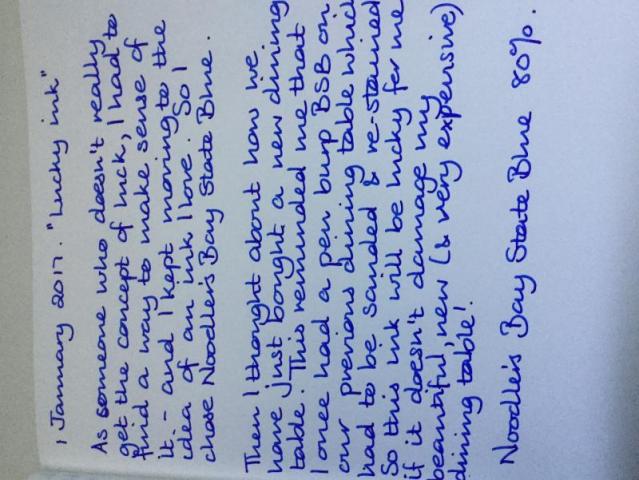 1 January 2017. "Lucky ink"
As someone who doesn't really
get the concept of luck, I had to
find a way to make sense of
it - and I kept moving to the
idea of an ink I love. So I
chose Noodler's Bay State Blue.
Then I thought about how we
have just bought a new dining
table. This reminded me that
I once had a pen burp BSB on
our previous dining table which
had to be sanded & re-stained
So this ink will be lucky for me
if it doesn't damage my
beautiful, new (& very expensive)
dining table!
Noodler's Bay State Blue 80%.